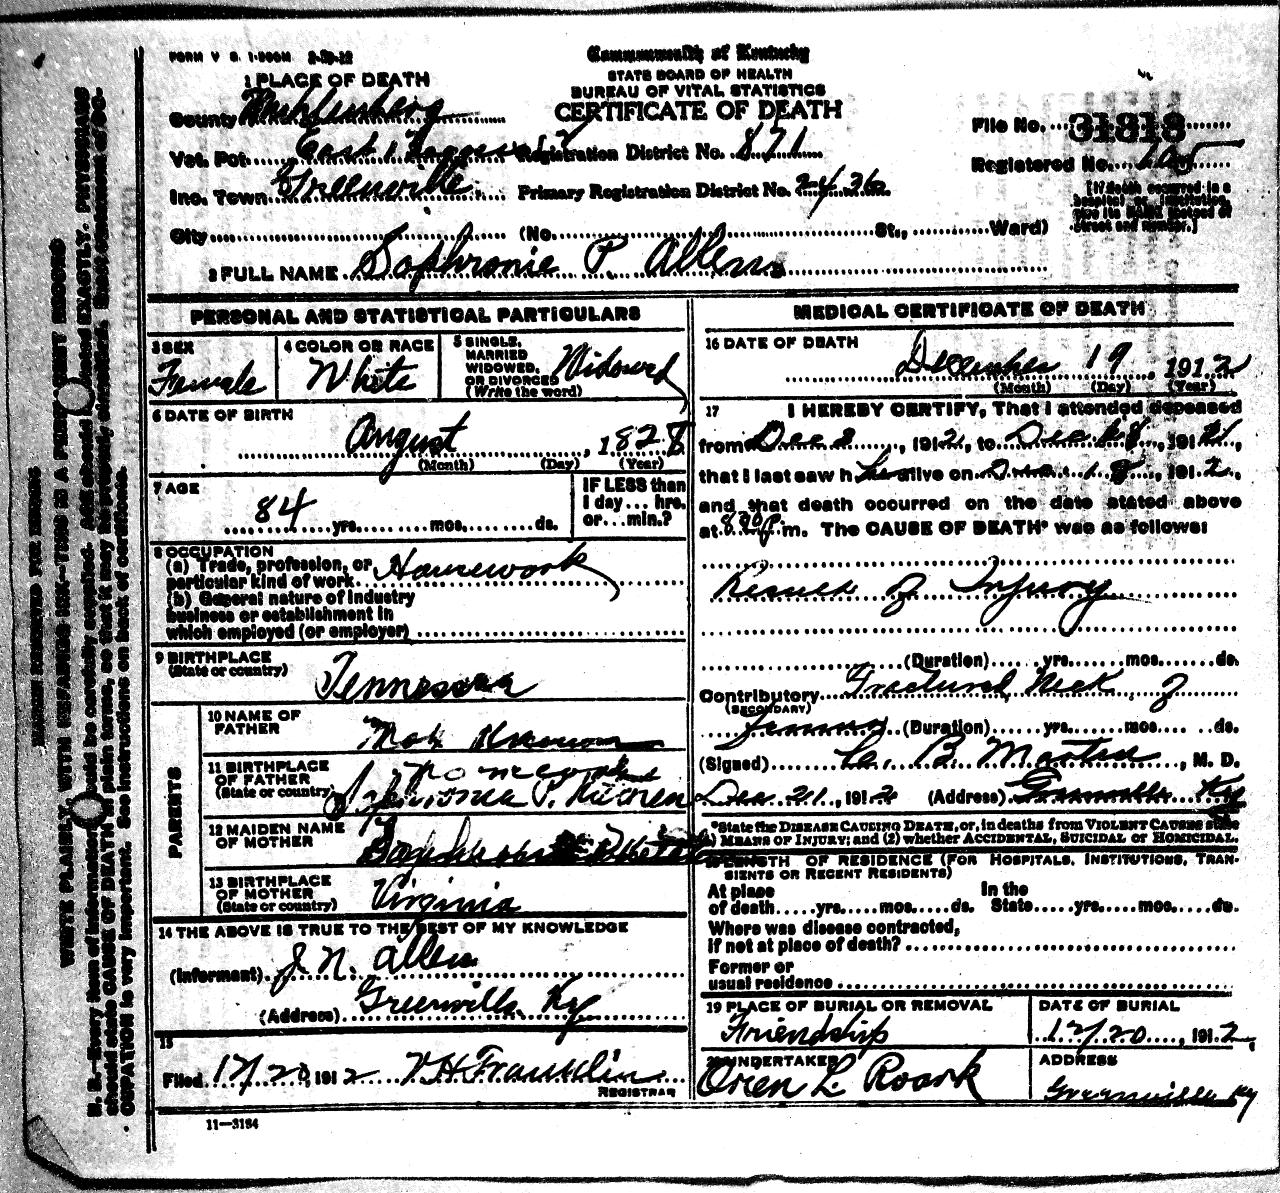 FORM V S. 1-200M 2-20-12
Commonwealth of Kentucky
STATE BOARD OF HEALTH
BUREAU OF VITAL STATISTICS
CERTIFICATE OF DEATH
1 PLACE OF DEATH
County Muhlenberg
Vot. Pct. East Registration District No. 871
Inc. Town Greenville Primary Registration District No. 2436
City (No. St., Ward)
File No. 31818
Registered No.
[If death occurred in a
hospital or institution,
give its NAME instead of
street and number.]
2 FULL NAME Sophronie P. Allen
PERSONAL AND STATISTICAL PARTICULARS
3 SEX Female
4 COLOR OR RACE White
5 SINGLE, MARRIED, WIDOWED, OR DIVORCED (Write the word) Widowed
6 DATE OF BIRTH
August, 1828
(Month) (Day) (Year)
7 AGE
84 yrs. mos. ds.
IF LESS than
1 day... hrs.
or... min.?
8 OCCUPATION
(a) Trade, profession, or
particular kind of work Housework
(b) General nature of industry
business or establishment in
which employed (or employer)
9 BIRTHPLACE
(State or country) Tennessee
PARENTS
10 NAME OF
FATHER Not Known
11 BIRTHPLACE
OF FATHER
(State or country)
12 MAIDEN NAME
OF MOTHER
13 BIRTHPLACE
OF MOTHER
(State or country) Virginia
14 THE ABOVE IS TRUE TO THE BEST OF MY KNOWLEDGE
(Informant) J. N. Allen
(Address) Greenville, Ky
15
Filed 12/20 1912 V H Franklin
REGISTRAR
11—3184
MEDICAL CERTIFICATE OF DEATH
16 DATE OF DEATH
December 19, 1912
(Month) (Day) (Year)
17 I HEREBY CERTIFY, That I attended deceased
from Dec 2, 1912, to Dec 18, 1912,
that I last saw her alive on Dec 18, 1912,
and that death occurred on the date stated above
at 8:30 P. m. The CAUSE OF DEATH* was as follows:
Result of Injury
(Duration) yrs. mos. ds.
Contributory Fractured Neck of
(SECONDARY)
Femur (Duration) yrs. mos. ds.
(Signed) B. Martin, M. D.
Dec 21, 1912 (Address) Greenville Ky
*State the DISEASE CAUSING DEATH, or, in deaths from VIOLENT CAUSES state
(1) MEANS OF INJURY; and (2) whether ACCIDENTAL, SUICIDAL or HOMICIDAL.
LENGTH OF RESIDENCE (FOR HOSPITALS, INSTITUTIONS, TRAN-
SIENTS OR RECENT RESIDENTS)
At place In the
of death yrs. mos. ds. State yrs. mos. ds.
Where was disease contracted,
if not at place of death?
Former or
usual residence
19 PLACE OF BURIAL OR REMOVAL
Friendship
DATE OF BURIAL
12/20, 1912
20 UNDERTAKER
Oren L. Roark
ADDRESS
Greenville Ky
MARGIN RESERVED FOR BINDING
WRITE PLAINLY, WITH UNFADING INK—THIS IS A PERMANENT RECORD
N. B.—Every item of information should be carefully supplied. AGE should be stated EXACTLY. PHYSICIANS
should state CAUSE OF DEATH in plain terms, so that it may be properly classified. Exact statement of OC-
CUPATION is very important. See instructions on back of certificate.